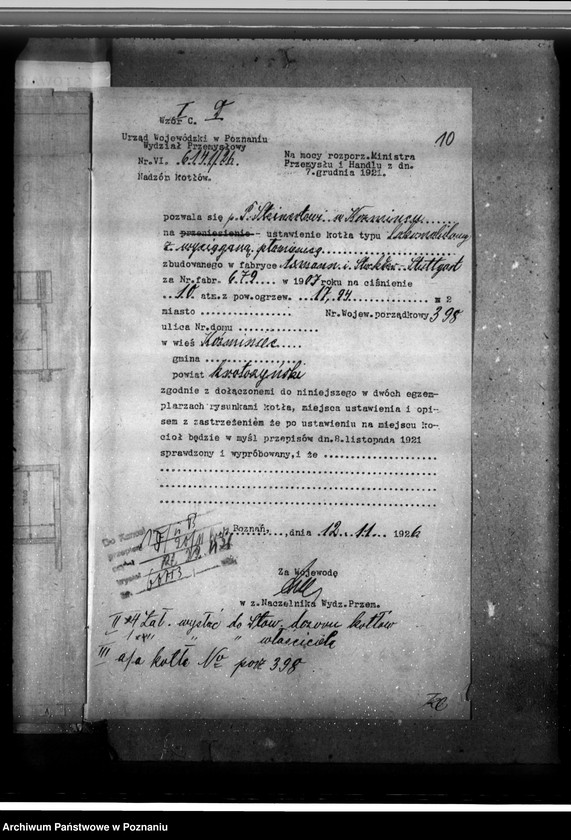 I
Wzór C.
10
Urząd Wojewódzki w Poznaniu
Wydział Przemysłowy
Nr.VI.
Nadzór kotłów.
Na mocy rozporz.Ministra
Przemysłu i Handlu z dn.
7.grudnia 1921.
pozwala się p. w Koźmińcu
na przeniesienie - ustawienie kotła typu lokomobilowy
z wyciąganą płomienicą
zbudowanego w fabryce Assmann i Stokder Stuttgart
za Nr.fabr. 679 w 1907 roku na ciśnienie
10 atm.z pow.ogrzew. 17,94 m 2
miasto Nr.Wojew.porządkowy 398
ulica Nr.domu
w wieś Koźminiec
gmina
powiat krotoszyński
zgodnie z dołączonemi do niniejszego w dwóch egzem-
plarzach rysunkami kotła, miejsca ustawienia i opi-
sem z zastrzeżeniem że po ustawieniu na miejscu ko-
cioł będzie w myśl przepisów dn.2.listopada 1921
sprawdzony i wypróbowany,i że
Poznań, dnia 12.11. 1926
Do Kancel.
Za Wojewodę
w z.Naczelnika Wydz.Przem.
II wysłać do Stow. dozoru kotłów
" " właściciela
III a/a kotła No porz 398
Archiwum Państwowe w Poznaniu